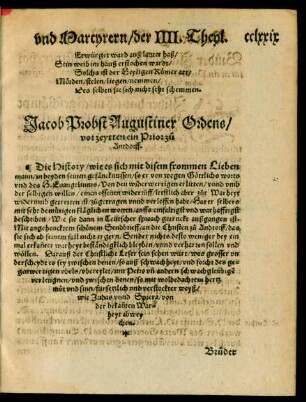 vnd Martyrern/der IIII. Theyl. cclxxix
Erwürget ward auß lauter haß/
Sein weib im hauß erstochen warde/
Solchs ist der Heyligen Römer art/
Mörden/stelen/liegen/nemmen/
Des selben sie sich nicht sehr schemmen.
Jacob Probst Augustiner Ordens/
vorzeytten ein Prior zů
Antdorff.
Die History/wie es sich mit disem frommen Lieben
mann/in beyden seinen gefäncknussen/so er von wegen Göttlichs worts
vnd des H. Euangeliums/Von den widerwertigen erlitten/vnnd vmb
der selbigen willen/ einen offenen widerrůff/letstlich aber zůr Warheyt
widerumb getretten ist/zůgetragen vnnd verloffen habe/Hat er selber
mit sehr demůtigen kläglichen worten/anffs einfältigst vnd warhafftigest
beschriben/Wie sie dann in Teütscher sprach getruckt außgangen ist/
Mit angehencktem schönem Sendbrieff/an die Christen zů Andorff/das
sie sich ab seinem fall nicht ergern. Sonder nichts desto weniger bey ein
mal erkañter warheyt bestendigklich bleyben/vnnd verharren sollen vnd
wöllen. Darauß der Christliche Leser fein sehen wirt/was grosser vn-
derscheydt es sey zwischen denen/so auß schwachheyt/vnd forcht des ge-
genwertigen vbels/vbereylet/mit Petro vn̄ andern sich wachgleubigē
verleugnen/vnd zwischen denen/so mit wolbedachtem hertz
můt vnd sinn/fürsetzlich vnd verstockter weyß/
wie Judas vnnd Spiera/von
der bekañten War-
heyt abwey-
chen.
Brůder